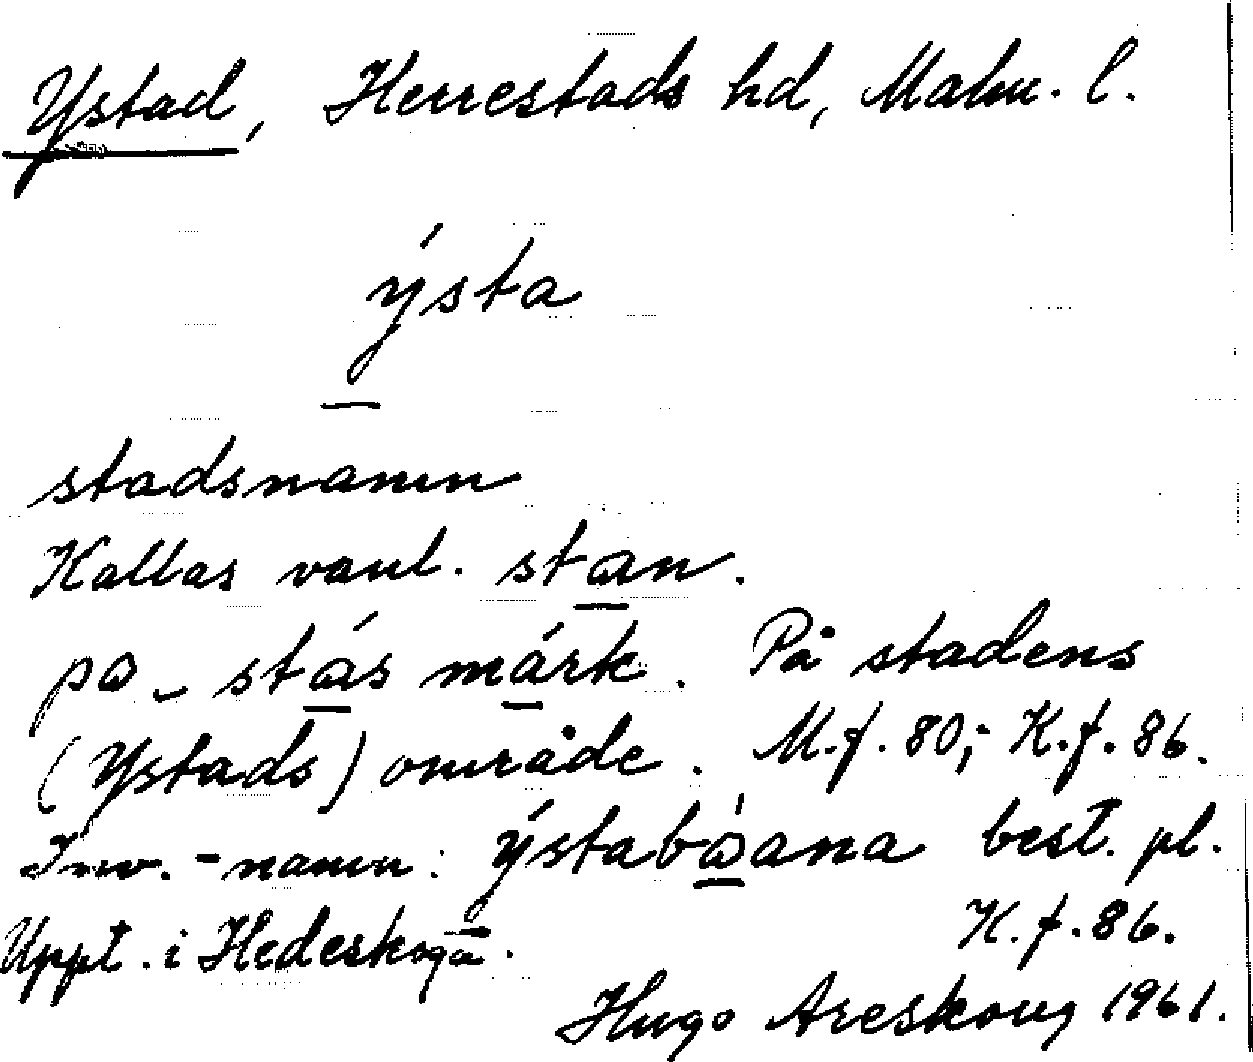 Ystad, Herrestads hd, Malm. l.
ýsta
stadsnamn
Kallas vanl. stan.
po stás márk. På stadens
(Ystads) område. M.f. 80; K.f. 86.
Inv.-namn: ýstabóana best. pl.
K.f. 86.
Uppt. i Hedeskoga.
Hugo Areskoug 1961.